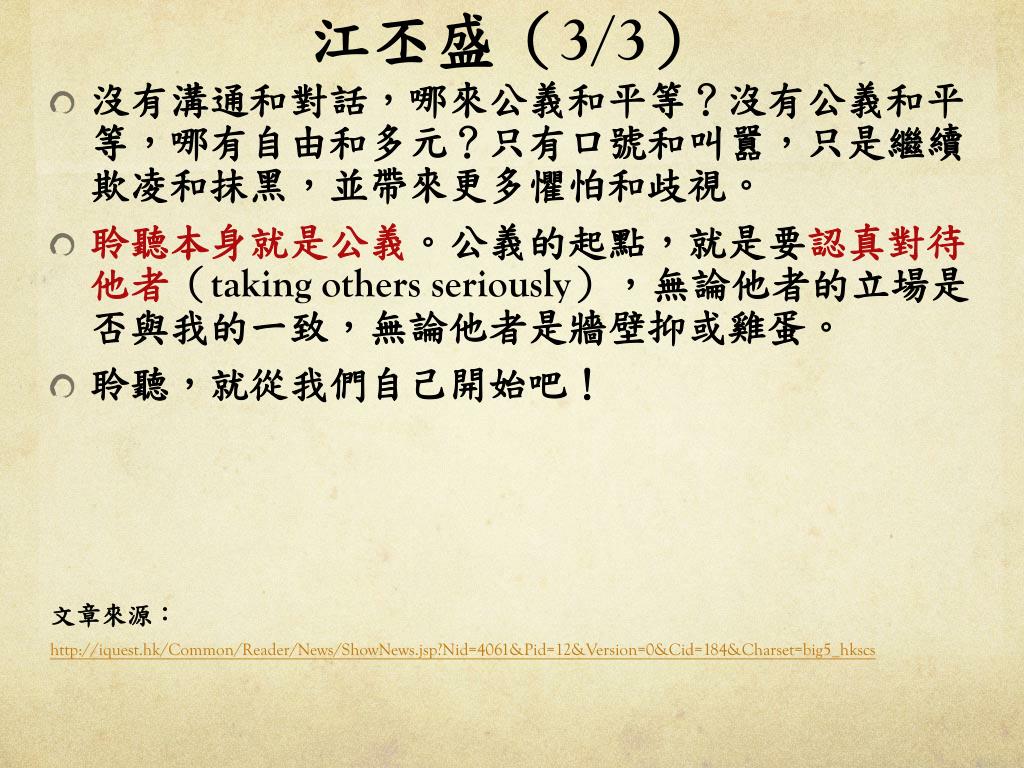 江丕盛（3/3）
沒有溝通和對話，哪來公義和平等？沒有公義和平
等，哪有自由和多元？只有口號和叫囂，只是繼續
欺凌和抹黑，並帶來更多懼怕和歧視。
聆聽本身就是公義。公義的起點，就是要認真對待
他者（taking others seriously），無論他者的立場是
否與我的一致，無論他者是牆壁抑或雞蛋。
聆聽，就從我們自己開始吧！
文章來源：
http://iquest.hk/Common/Reader/News/ShowNews.jsp?Nid=4061&Pid=12&Version=0&Cid=184&Charset=big5_hkscs